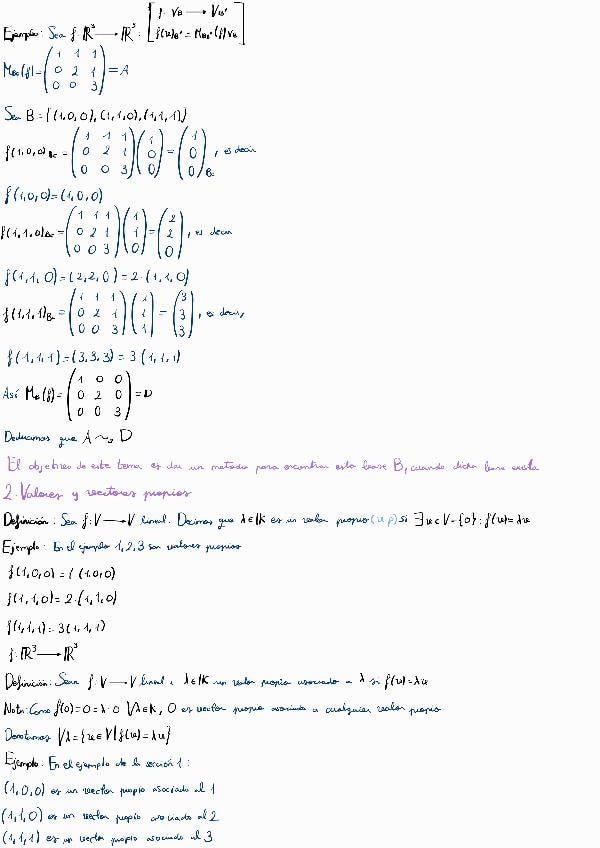 Ejemplo: Sea f: ℝ³ → ℝ³: [f: V_B → V_B' f(v)_B' = M_BB'(f) v_B]
M_Bc(f) = (1 1 1; 0 2 1; 0 0 3) = A
Sea B = {(1,0,0), (1,1,0), (1,1,1)}
f(1,0,0)_Bc = (1 1 1; 0 2 1; 0 0 3)(1; 0; 0) = (1; 0; 0)_Bc, es decir
f(1,0,0) = (1,0,0)
f(1,1,0)_Bc = (1 1 1; 0 2 1; 0 0 3)(1; 1; 0) = (2; 2; 0), es decir
f(1,1,0) = (2,2,0) = 2·(1,1,0)
f(1,1,1)_Bc = (1 1 1; 0 2 1; 0 0 3)(1; 1; 1) = (3; 3; 3), es decir,
f(1,1,1) = (3,3,3) = 3(1,1,1)
Así M_B(f) = (1 0 0; 0 2 0; 0 0 3) = D
Deducimos que A ~s D
El objetivo de este tema es dar un metodo para encontrar esta base B, cuando dicha base exista
2. Valores y vectores propios
Definición: Sea f: V → V lineal. Decimos que λ ∈ 𝕂 es un valor propio (v p) si ∃ v ∈ V - {0} : f(v) = λv
Ejemplo: En el ejemplo 1, 2, 3 son valores propios
f(1,0,0) = 1 (1,0,0)
f(1,1,0) = 2·(1,1,0)
f(1,1,1) = 3(1,1,1)
f: ℝ³ → ℝ³
Definición: Sean f: V → V lineal λ ∈ 𝕂 un vector propio asociado a λ si f(v) = λv
Nota: Como f(0) = 0 = λ·0 ∀λ ∈ 𝕂, 0 es vector propio asociado a cualquier valor propio
Denotamos Vλ = {v ∈ V | f(v) = λv}
Ejemplo: En el ejemplo de la sección 1:
(1,0,0) es un vector propio asociado al 1
(1,1,0) es un vector propio asociado al 2
(1,1,1) es un vector propio asociado al 3